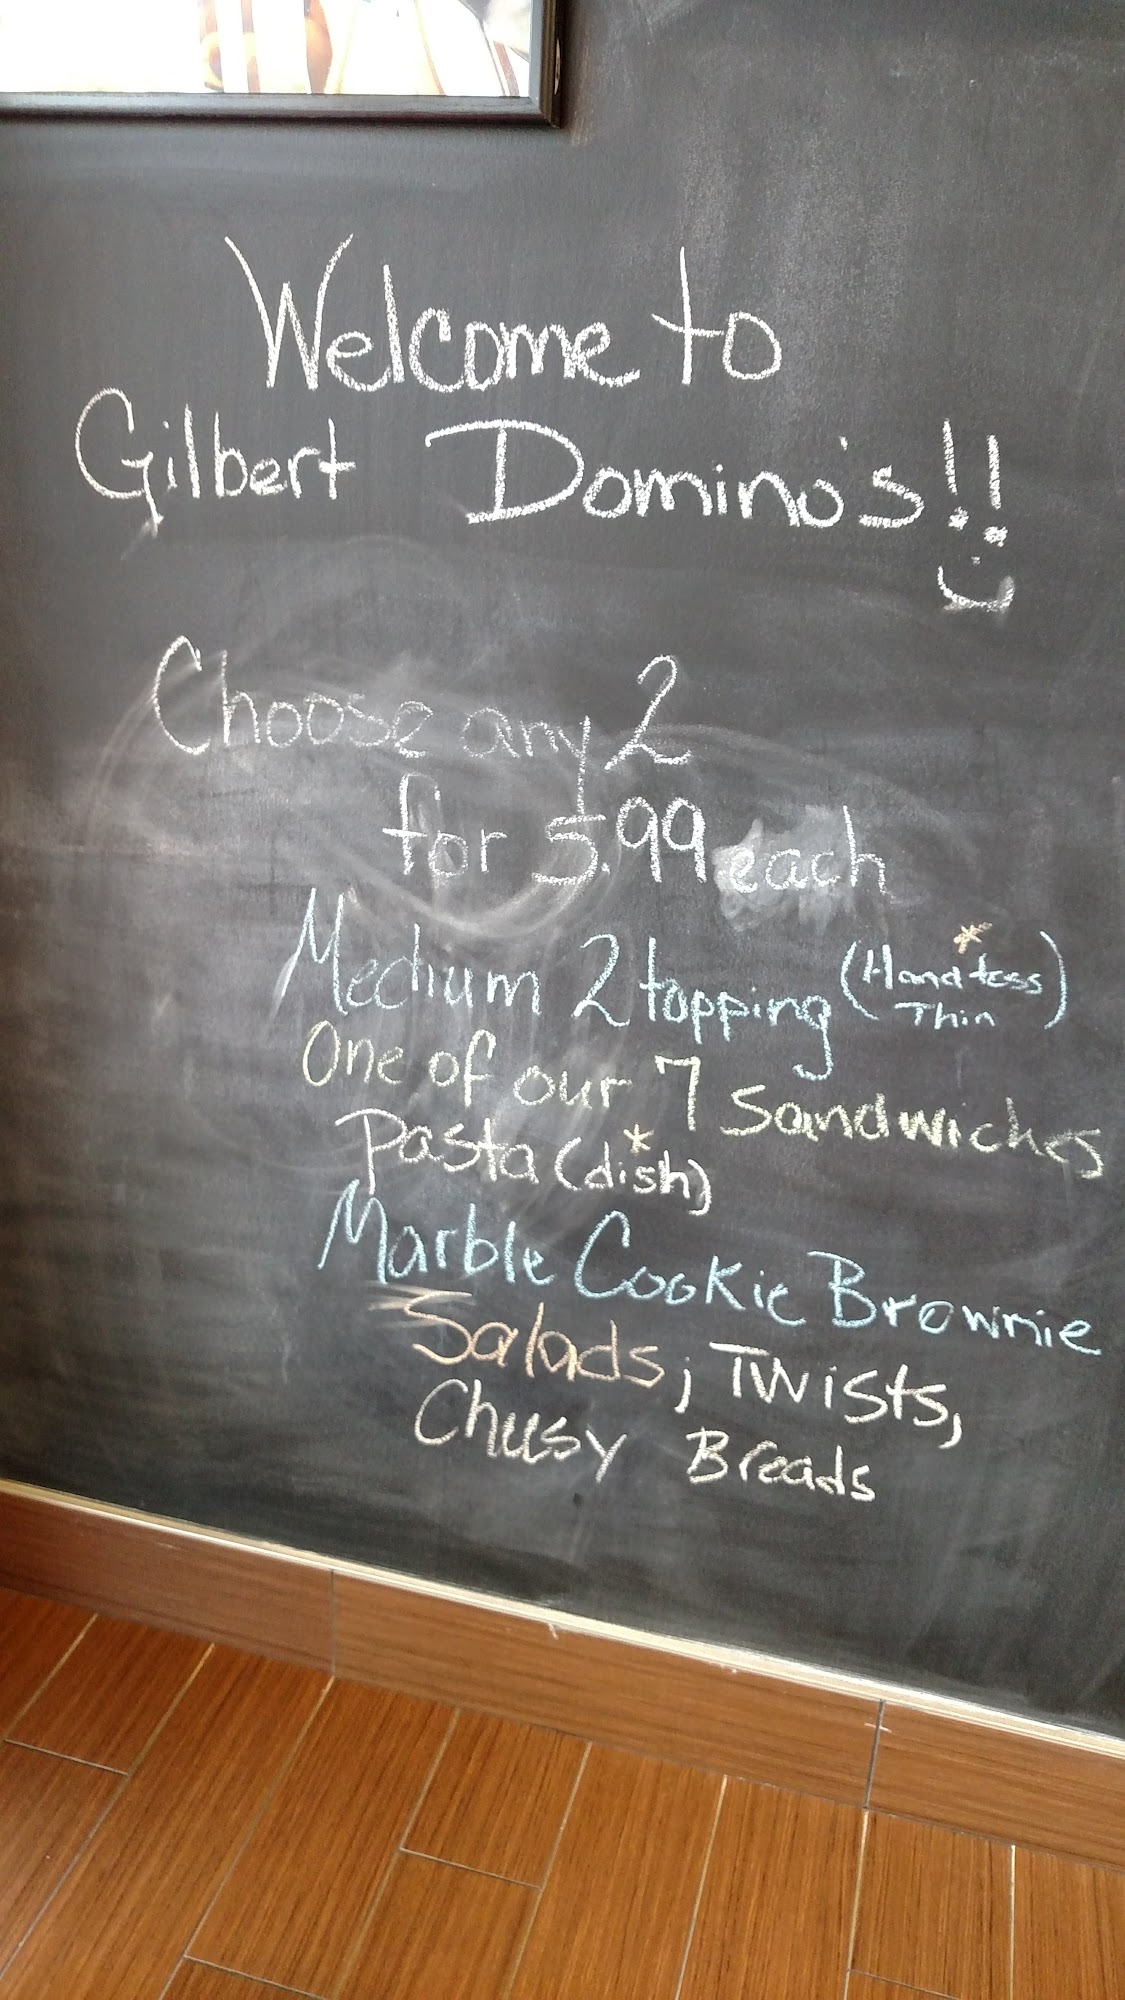 Welcome to
Gilbert Domino's!!
Choose any 2
for 5.99 each
Medium 2 topping (Hand toss*
Thin)
One of our 7 Sandwiches
Pasta (dish)*
Marble Cookie Brownie
Salads, Twists,
Chusy Breads